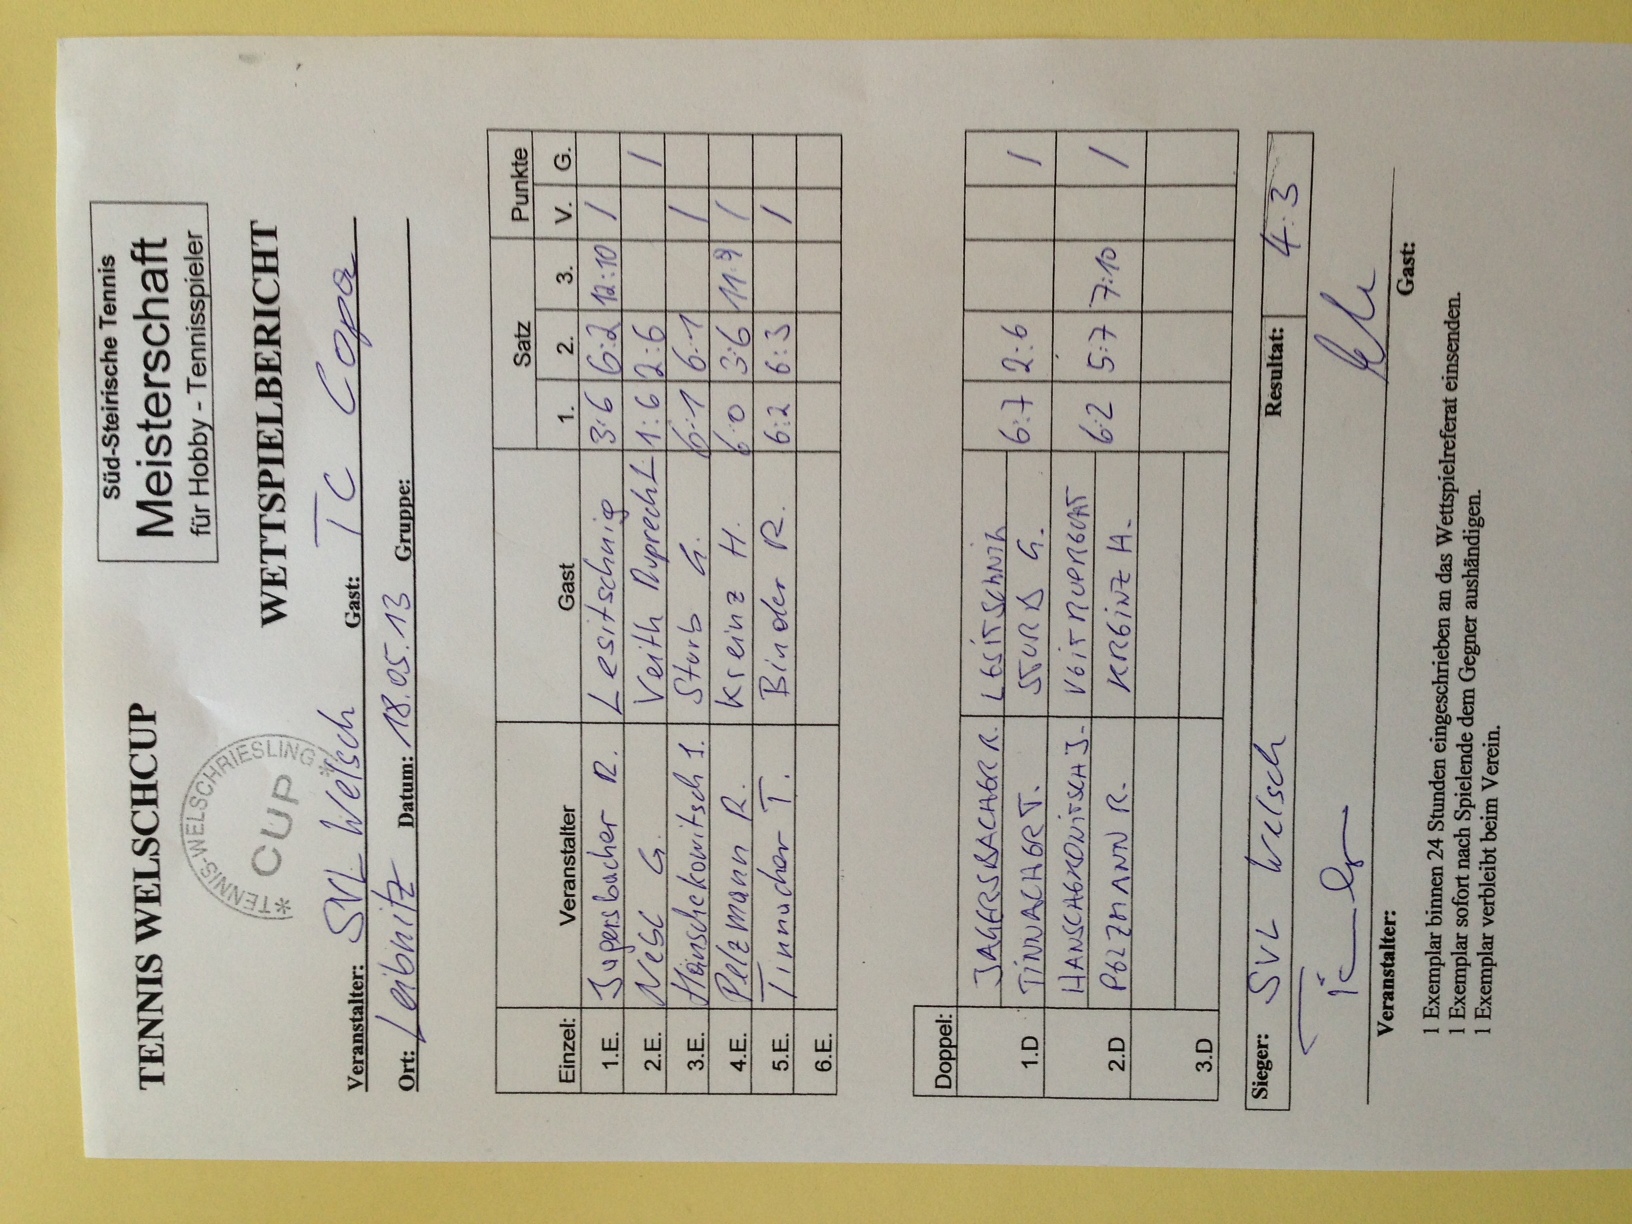 TENNIS WELSCHCUP
Süd-Steirische Tennis
Meisterschaft
für Hobby - Tennisspieler
*TENNIS-WELSCHRIESLING*
CUP
WETTSPIELBERICHT
Veranstalter: SVL Welsch Gast: TC Copa
Ort: Leibnitz Datum: 18.05.13 Gruppe:
Einzel: Veranstalter Gast Satz Punkte
1. 2. 3. V. G.
1.E. R. Lesitschnig 3:6 6:2 12:10 /
2.E. G. Veith Ruprecht 1:6 2:6 /
3.E. Hanschekowitsch J. Sturb G. 6:1 6:1 /
4.E. Pelzmann R. Kreinz H. 6:0 3:6 11:9 /
5.E. Tinnacher T. Binder R. 6:2 6:3 /
6.E.
Doppel:
1.D JAGERSBACHER R. LESITSCHNIG 6:7 2:6 /
TINNACHER T. STURB G.
2.D HANSCHEKOWITSCH J. VEIT RUPRECHT 6:2 5:7 7:10 /
PELZMANN R. KREINZ H.
3.D
Sieger: SVL Welsch Resultat: 4:3
Veranstalter: Gast:
1 Exemplar binnen 24 Stunden eingeschrieben an das Wettspielreferat einsenden.
1 Exemplar sofort nach Spielende dem Gegner aushändigen.
1 Exemplar verbleibt beim Verein.